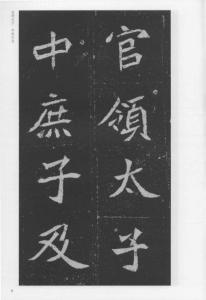 官領太子
中庶子及